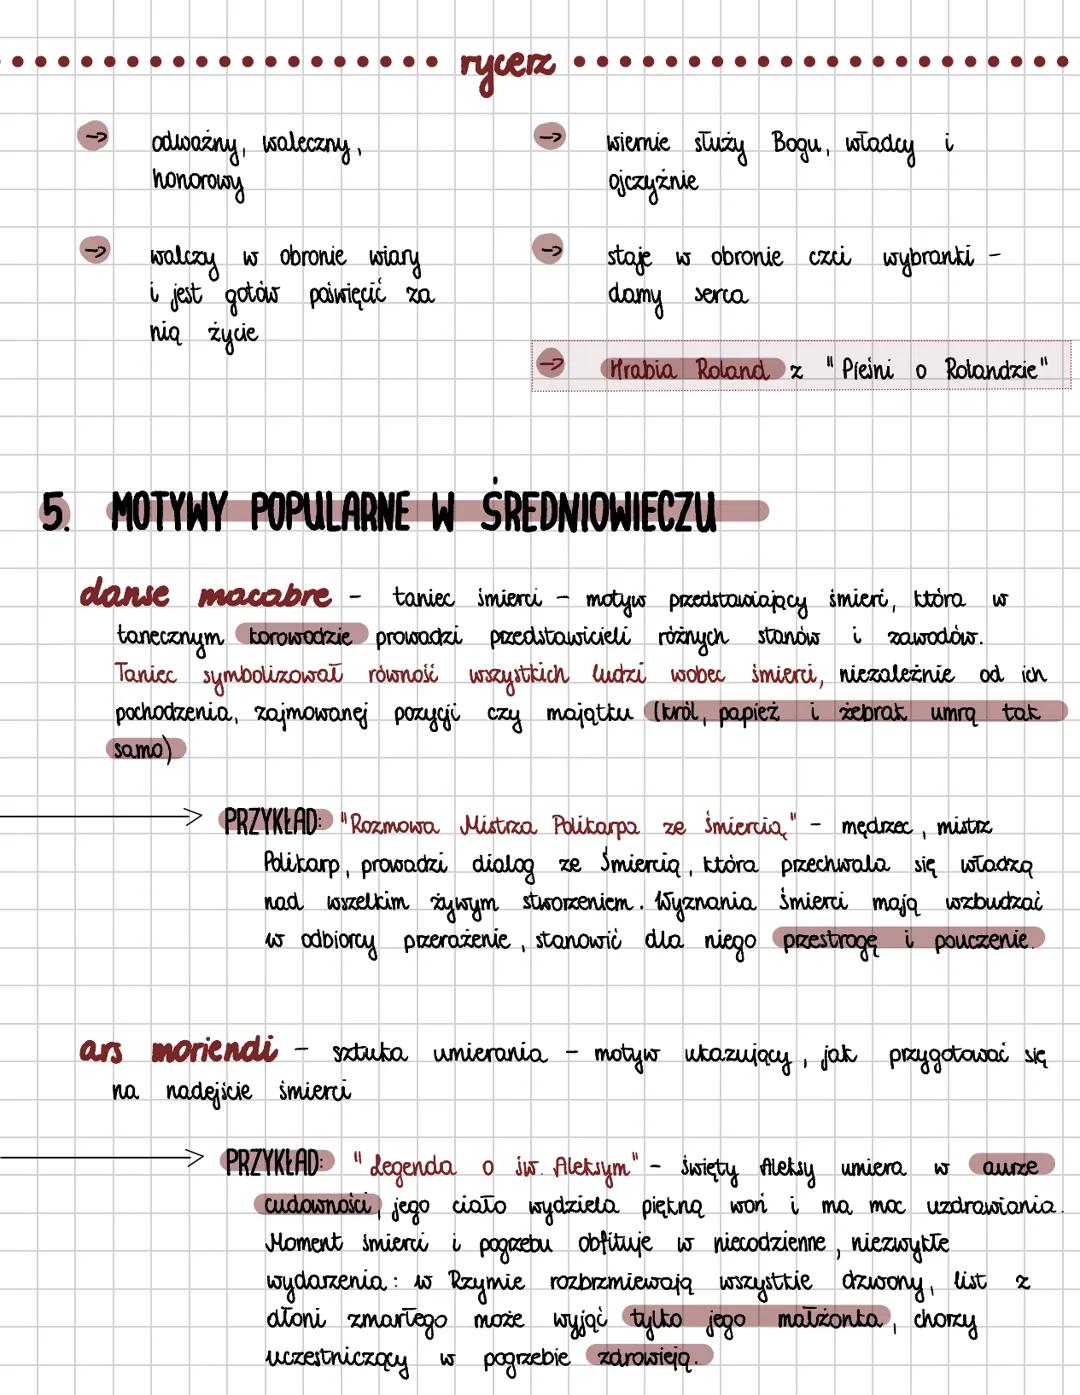 rycerz
→ odważny, waleczny,
honorowy
→ walczy w obronie wiary
i jest gotów poświęcić za
nią życie
→ wiernie służy Bogu, władcy i
ojczyźnie
→ staje w obronie czci wybranki -
damy serca
→ Hrabia Roland z "Pieśni o Rolandzie"
5. MOTYWY POPULARNE W ŚREDNIOWIECZU
danse macabre - taniec śmierci - motyw przedstawiający śmierć, która w
tanecznym korowodzie prowadzi przedstawicieli różnych stanów i zawodów.
Taniec symbolizował równość wszystkich ludzi wobec śmierci, niezależnie od ich
pochodzenia, zajmowanej pozycji czy majątku (król, papież i żebrak umrą tak
samo)
PRZYKŁAD: "Rozmowa Mistrza Polikarpa ze Śmiercią" - mędrzec, mistrz
Polikarp, prowadzi dialog ze Śmiercią, która przechwala się władzą
nad wszelkim żywym stworzeniem. Wyznania Śmierci mają wzbudzać
w odbiorcy przerażenie, stanowić dla niego przestrogę i pouczenie.
ars moriendi - sztuka umierania - motyw ukazujący, jak przygotować się
na nadejście śmierci
PRZYKŁAD: "Legenda o św. Aleksym" - święty Aleksy umiera w aurze
cudowności, jego ciało wydziela piękną woń i ma moc uzdrawiania.
Moment śmierci i pogrzebu obfituje w niecodzienne, niezwykłe
wydarzenia: w Rzymie rozbrzmiewają wszystkie dzwony, list z
dłoni zmarłego może wyjąć tylko jego małżonka, chorzy
uczestniczący w pogrzebie zdrowieją.